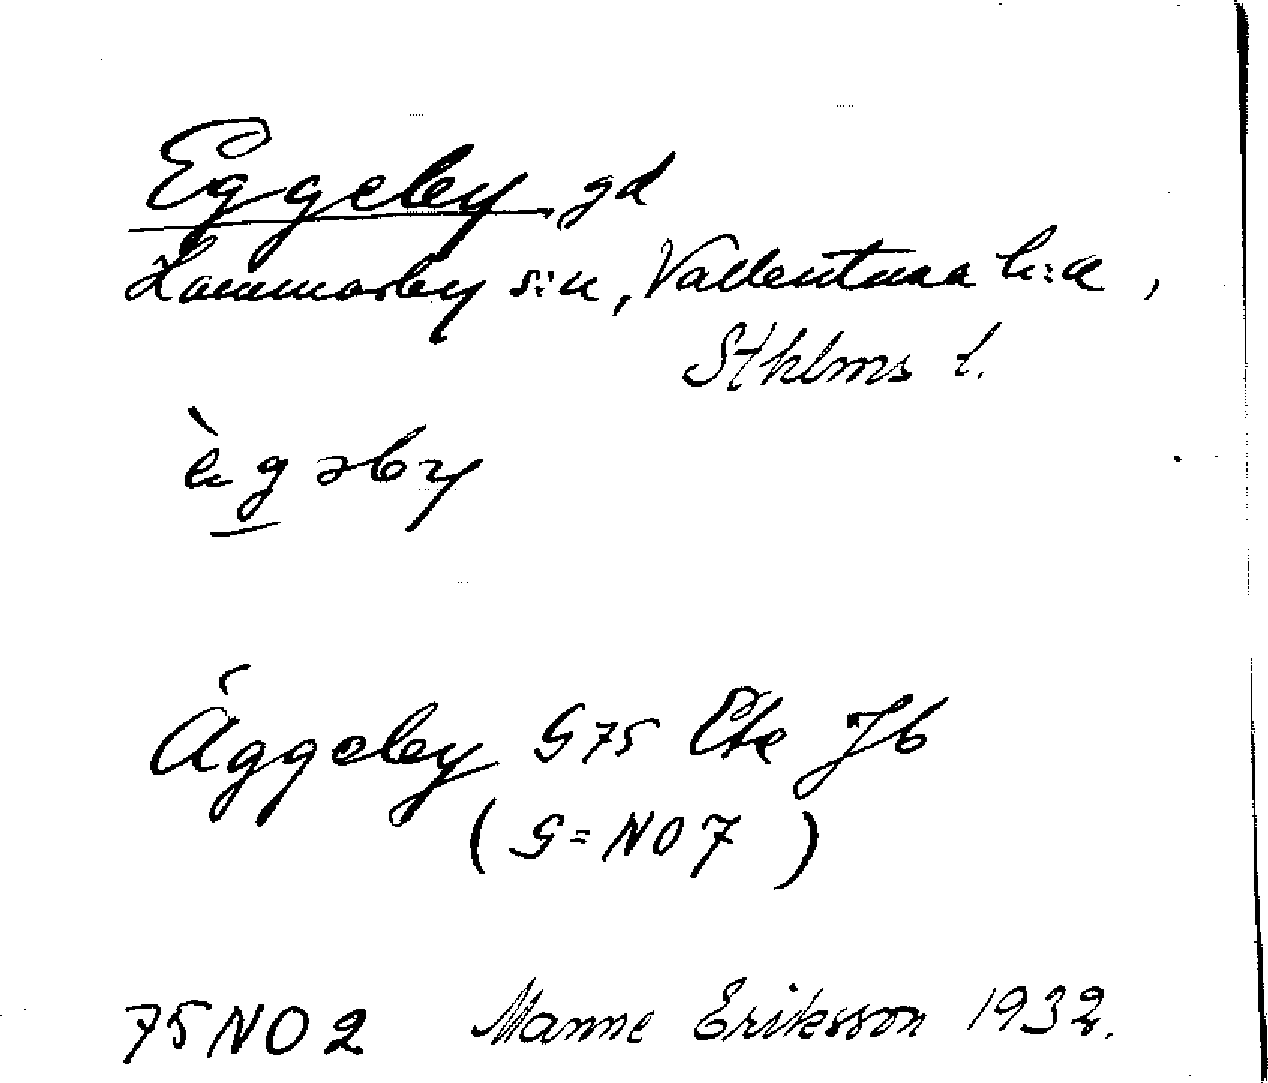 Eggeby gd
Hammarby s:n, Vallentuna h:a,
Sthlms l.
ὲgəby
Äggeby G75 Eka Jb
(G=NO7)
75NO2 Manne Eriksson 1932.